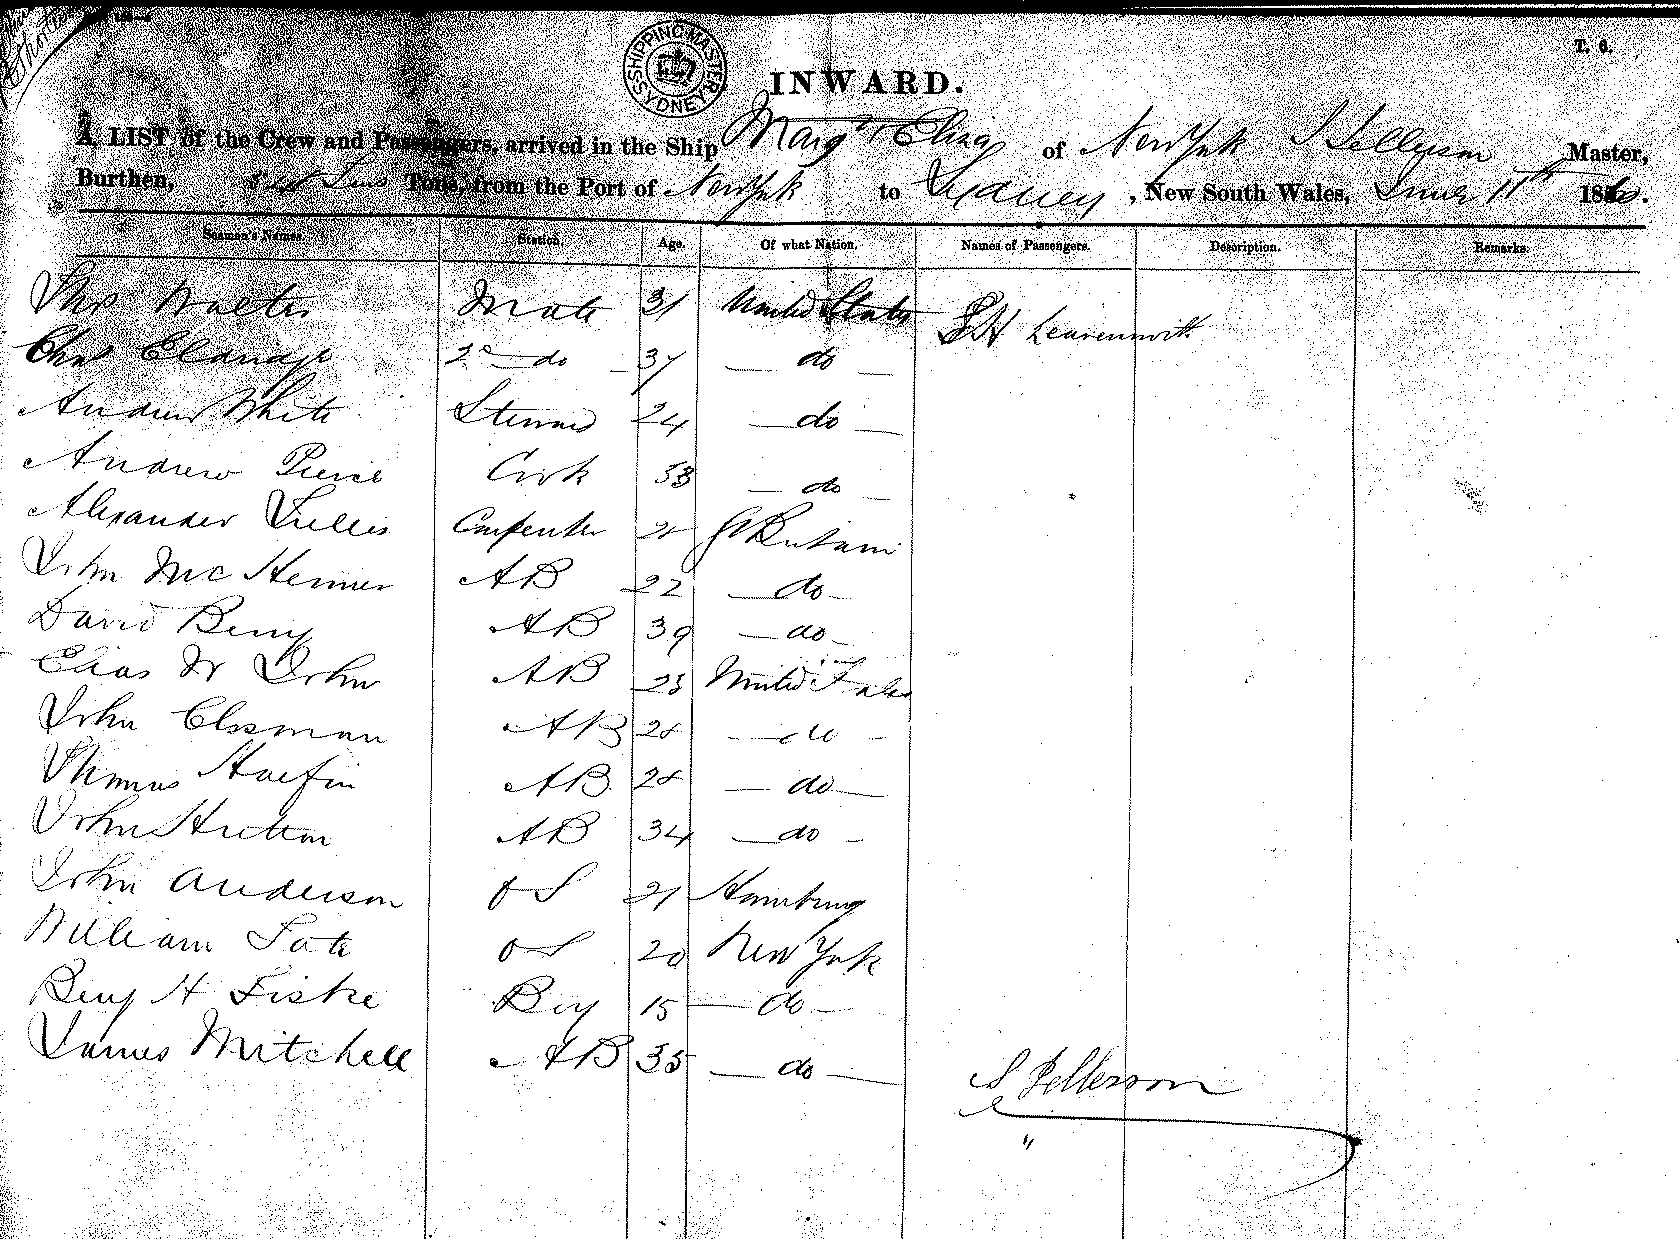 T. 6.
SHIPPING MASTER SYDNEY
INWARD.
A LIST of the Crew and Passengers, arrived in the Ship Margt & Eliza of New York S Pellerson Master,
Burthen, Tons, from the Port of New York to Sydney, New South Wales, June 11th 186
Seamen's Names. Station. Age. Of what Nation. Names of Passengers. Description. Remarks.
Thos Walter Mate 31 United States
H Leavenworth
Chas 2d do 37 do
Andrew White Steward 24 do
Andrew Pierce Cook 33 do
Alexander Carpenter Gt Britain
John Mc AB 22 do
David Berry AB 39 do
Elias W John AB 23 United States
John Closman AB 28 do
Thomas AB 28 do
John Hutton AB 34 do
John Anderson OS 21 Hamburg
William Tate OS 20 New York
Benj H Fiske Boy 15 do
James Mitchell AB 35 do
S Pellerson